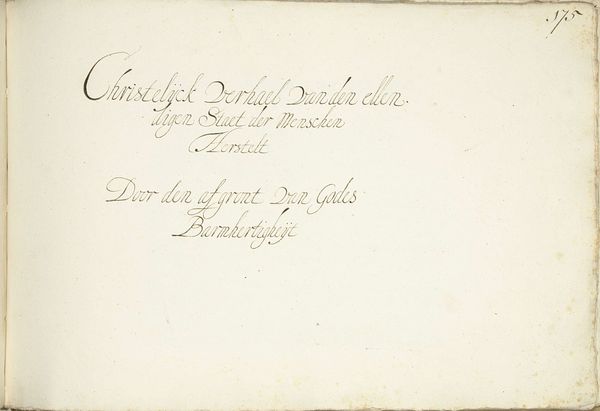 175
Christelijck verhael van den ellen-
digen Staet der Menschen
Herstelt
Door den afgront van Godes
Barmhertigheijt